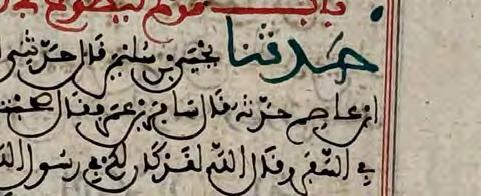 باب من لم يتطوع في
حدثنا يحيى بن سليمن قال حدثني
ابن عاصم حدثه قال سافر ابن عمر فقال صحبت
في السفر وقال الله لقد كان لكم في رسول الله